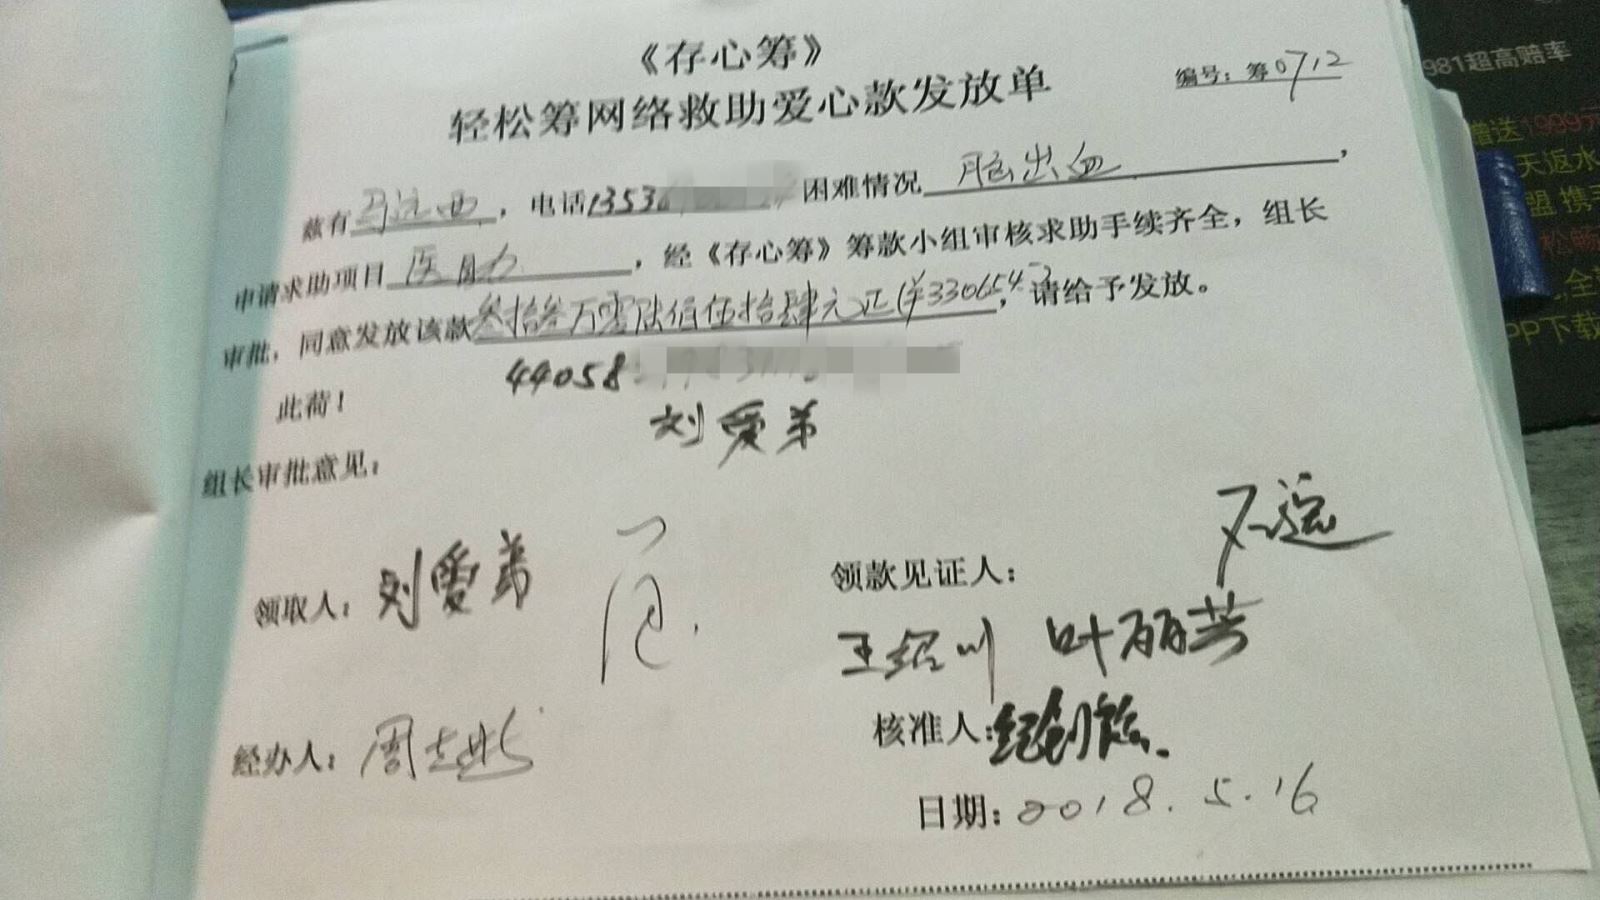 《存心筹》
轻松筹网络救助爱心款发放单
编号：筹0712
兹有马达西，电话1353 困难情况 脑出血，
申请求助项目 医助，经《存心筹》筹款小组审核求助手续齐全，组长
审批，同意发放该款叁拾叁万零陆佰伍拾肆元正(¥330654-)，请给予发放。
44058
此荷！
刘爱弟
组长审批意见：
领取人：刘爱弟
领款见证人：
王绍川 叶丽芳
经办人：周
核准人：
日期：2018.5.16
981超高赔率
赠送1999元
天返水
盟 携手
松畅
全
PP下载